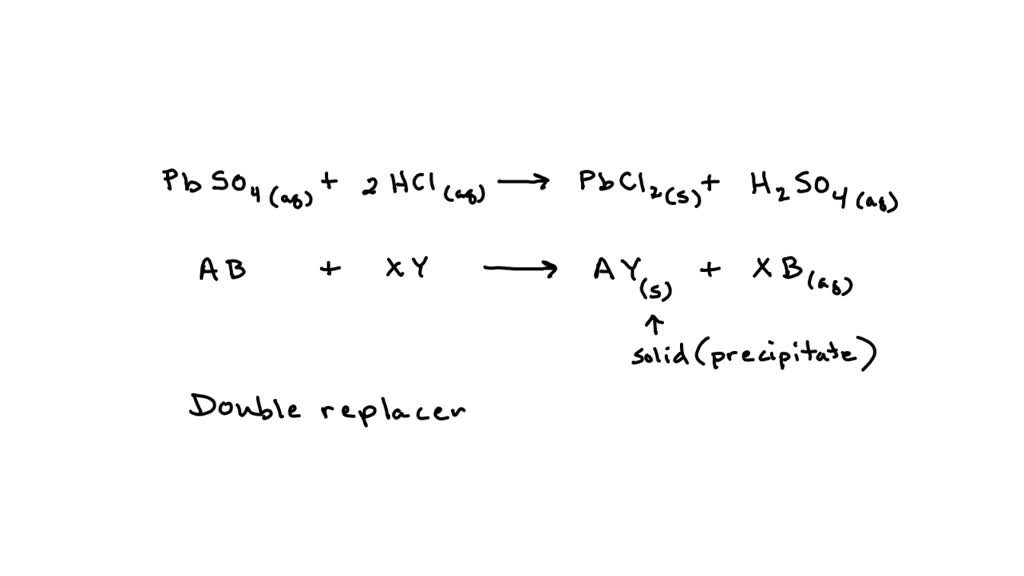 PbSO₄(aq) + 2 HCl(aq) → PbCl₂(s) + H₂SO₄(aq)
AB + XY → AY(s) + XB(aq)
↑
solid (precipitate)
Double replacer